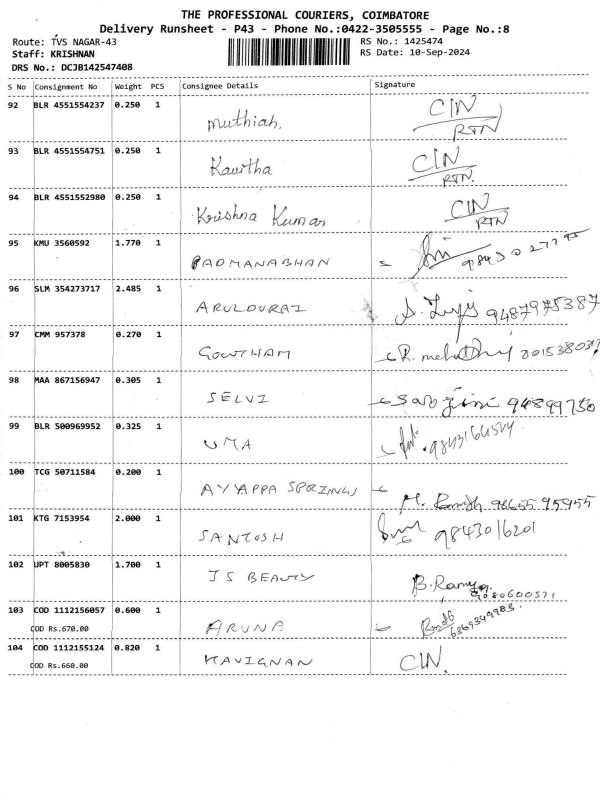 THE PROFESSIONAL COURIERS, COIMBATORE
Delivery Runsheet - P43 - Phone No.:0422-3505555 - Page No.:8
Route: TVS NAGAR-43
RS No.: 1425474
Staff: KRISHNAN
RS Date: 10-Sep-2024
DRS No.: DCJB142547408
S No Consignment No Weight PCS Consignee Details Signature
92 BLR 4551554237 0.250 1 Muthiah. CIN
RTN
93 BLR 4551554751 0.250 1 Kavitha CIN
RTN.
94 BLR 4551552980 0.250 1 Krishna Kumar CIN
RTN
95 KMU 3560592 1.770 1 PADMANABHAN
96 SLM 354273717 2.485 1 ARULDURAI 9487975387
97 CMM 957378 0.270 1 GOWTHAM
98 MAA 867156947 0.305 1 SELVI
99 BLR 500969952 0.325 1 UMA
100 TCG 50711584 0.200 1 AYYAPPA SPRINGS 98655 95955
101 KTG 7153954 2.000 1 SANTOSH 9843016201
102 UPT 8005830 1.700 1 JS BEAUTY B. Ramya
9080600571
103 COD 1112156057 0.600 1 ARUNA
COD Rs.670.00
104 COD 1112155124 0.820 1 KAVIGNAN CIN.
COD Rs.660.00